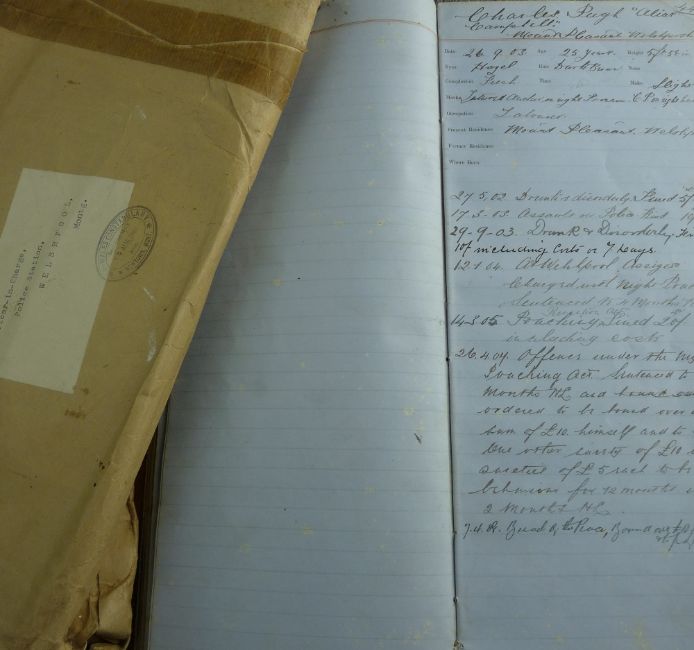 Officer-in-Charge,
Police Station,
WELSHPOOL,
Mont.
Charles Pugh "Alias
Campbell"
Mount Pleasant Welshpool
Date 26.9.03 Age 25 years Height 5ft 5½ in
Eyes Hazel Hair Dark Brown Nose
Complexion Fresh Face Make Slight
Marks
Occupation Labourer
Present Residence Mount Pleasant. Welshpool
Former Residence
Where Born
27.5.02 Drunk & disorderly Fined 5/
17.3.03. Assault on Police Fined
29-9-03. Drunk & Disorderly Fined
10/ including Costs or 7 days.
12.1.04. At Welshpool Assizes
Charged with Night Poaching
Sentenced to 4 Months
14-3-05 Poaching Fined 20/
including costs
26.4.09. Offence under the Night
Poaching Act. Sentenced to
Months HL and
ordered to be bound over
sum of £10. himself and to
one other surety of £10
sureties of £5 each to be
behaviour for 12 months
2 Months HL.
Breach of the Peace, Bound over